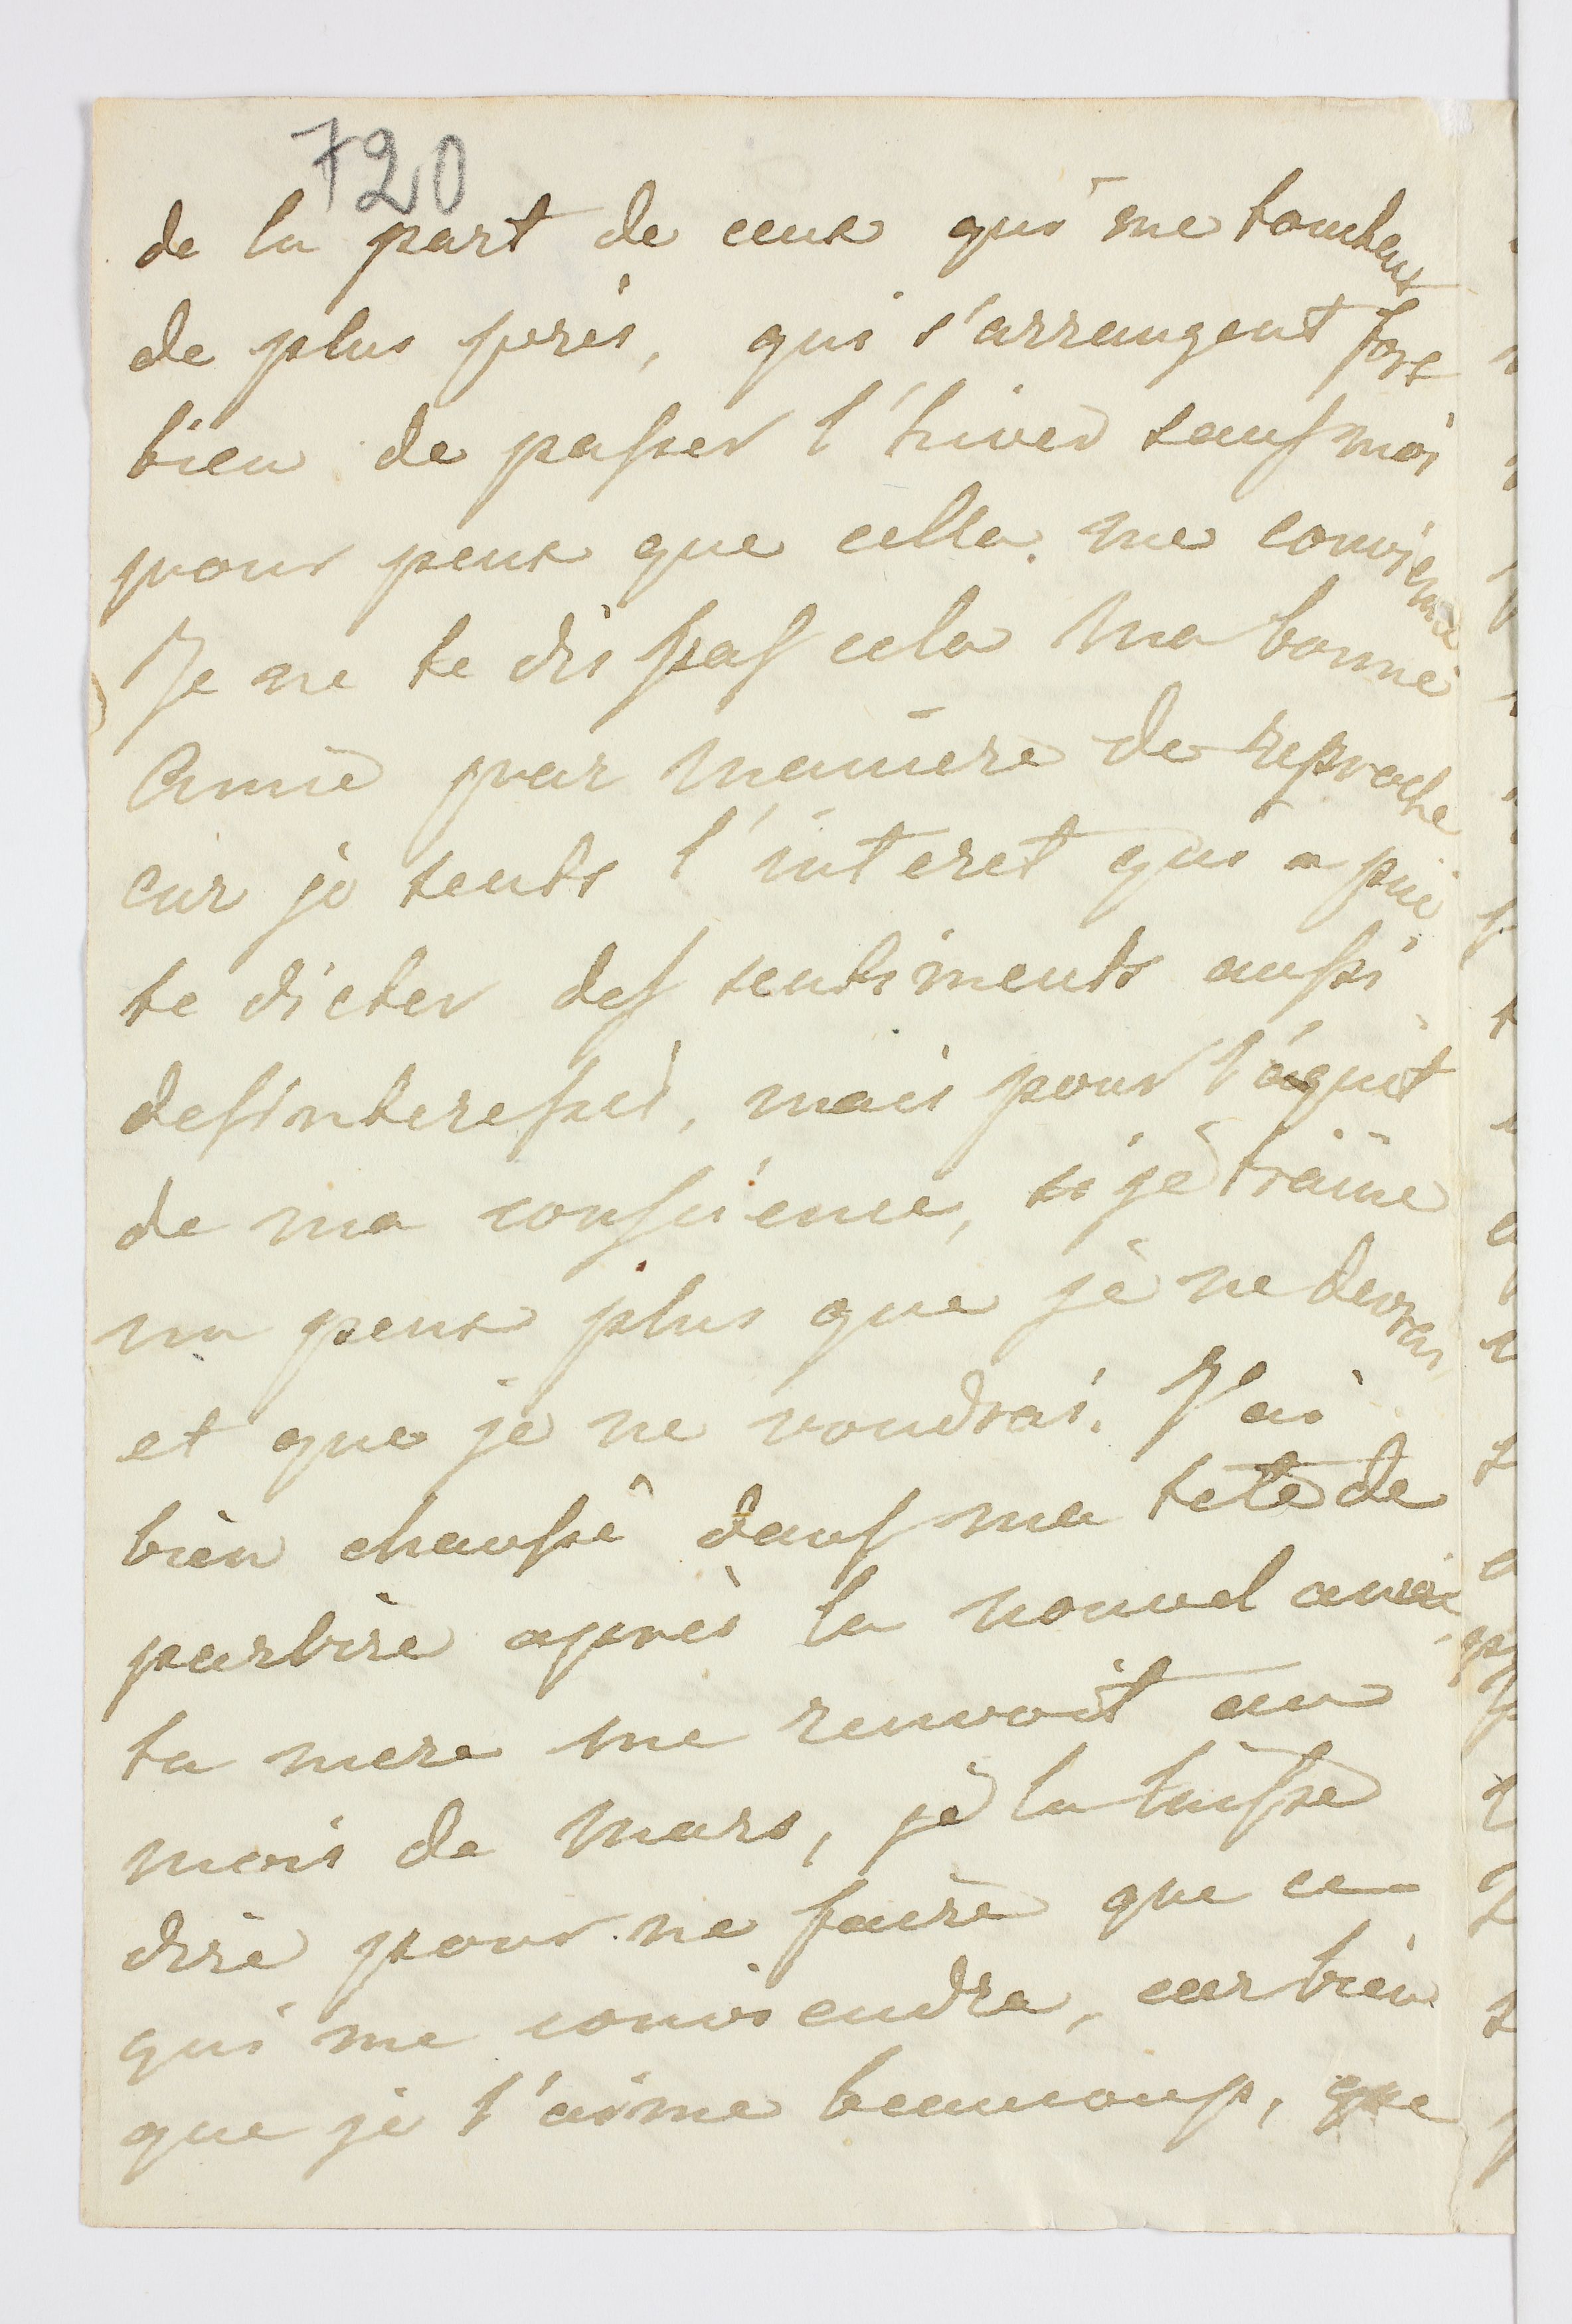 720
de la part de ceux qui me touchent
de plus près, qui s'arrangent fort
bien de passer l'hiver sans moi
pour peux que cella me convienne
Je ne te dis pas cela ma bonne
Amie par maniere de reproche
car je sents l'interet qui a pûe
te dicter des sentiments aussi
desinteressés, mais pour l'aquit
de ma consience, si je traine
un peux plus que je ne devrai
et que je ne voudrai. J'ai
bien chaussé dans ma tete de
partire après la nouvel année
ta mere me renvoit au
mois de Mars, je la laisse
dire pour ne faire que ce
qui me conviendra, car bien
que je l'aime beaucoup, que